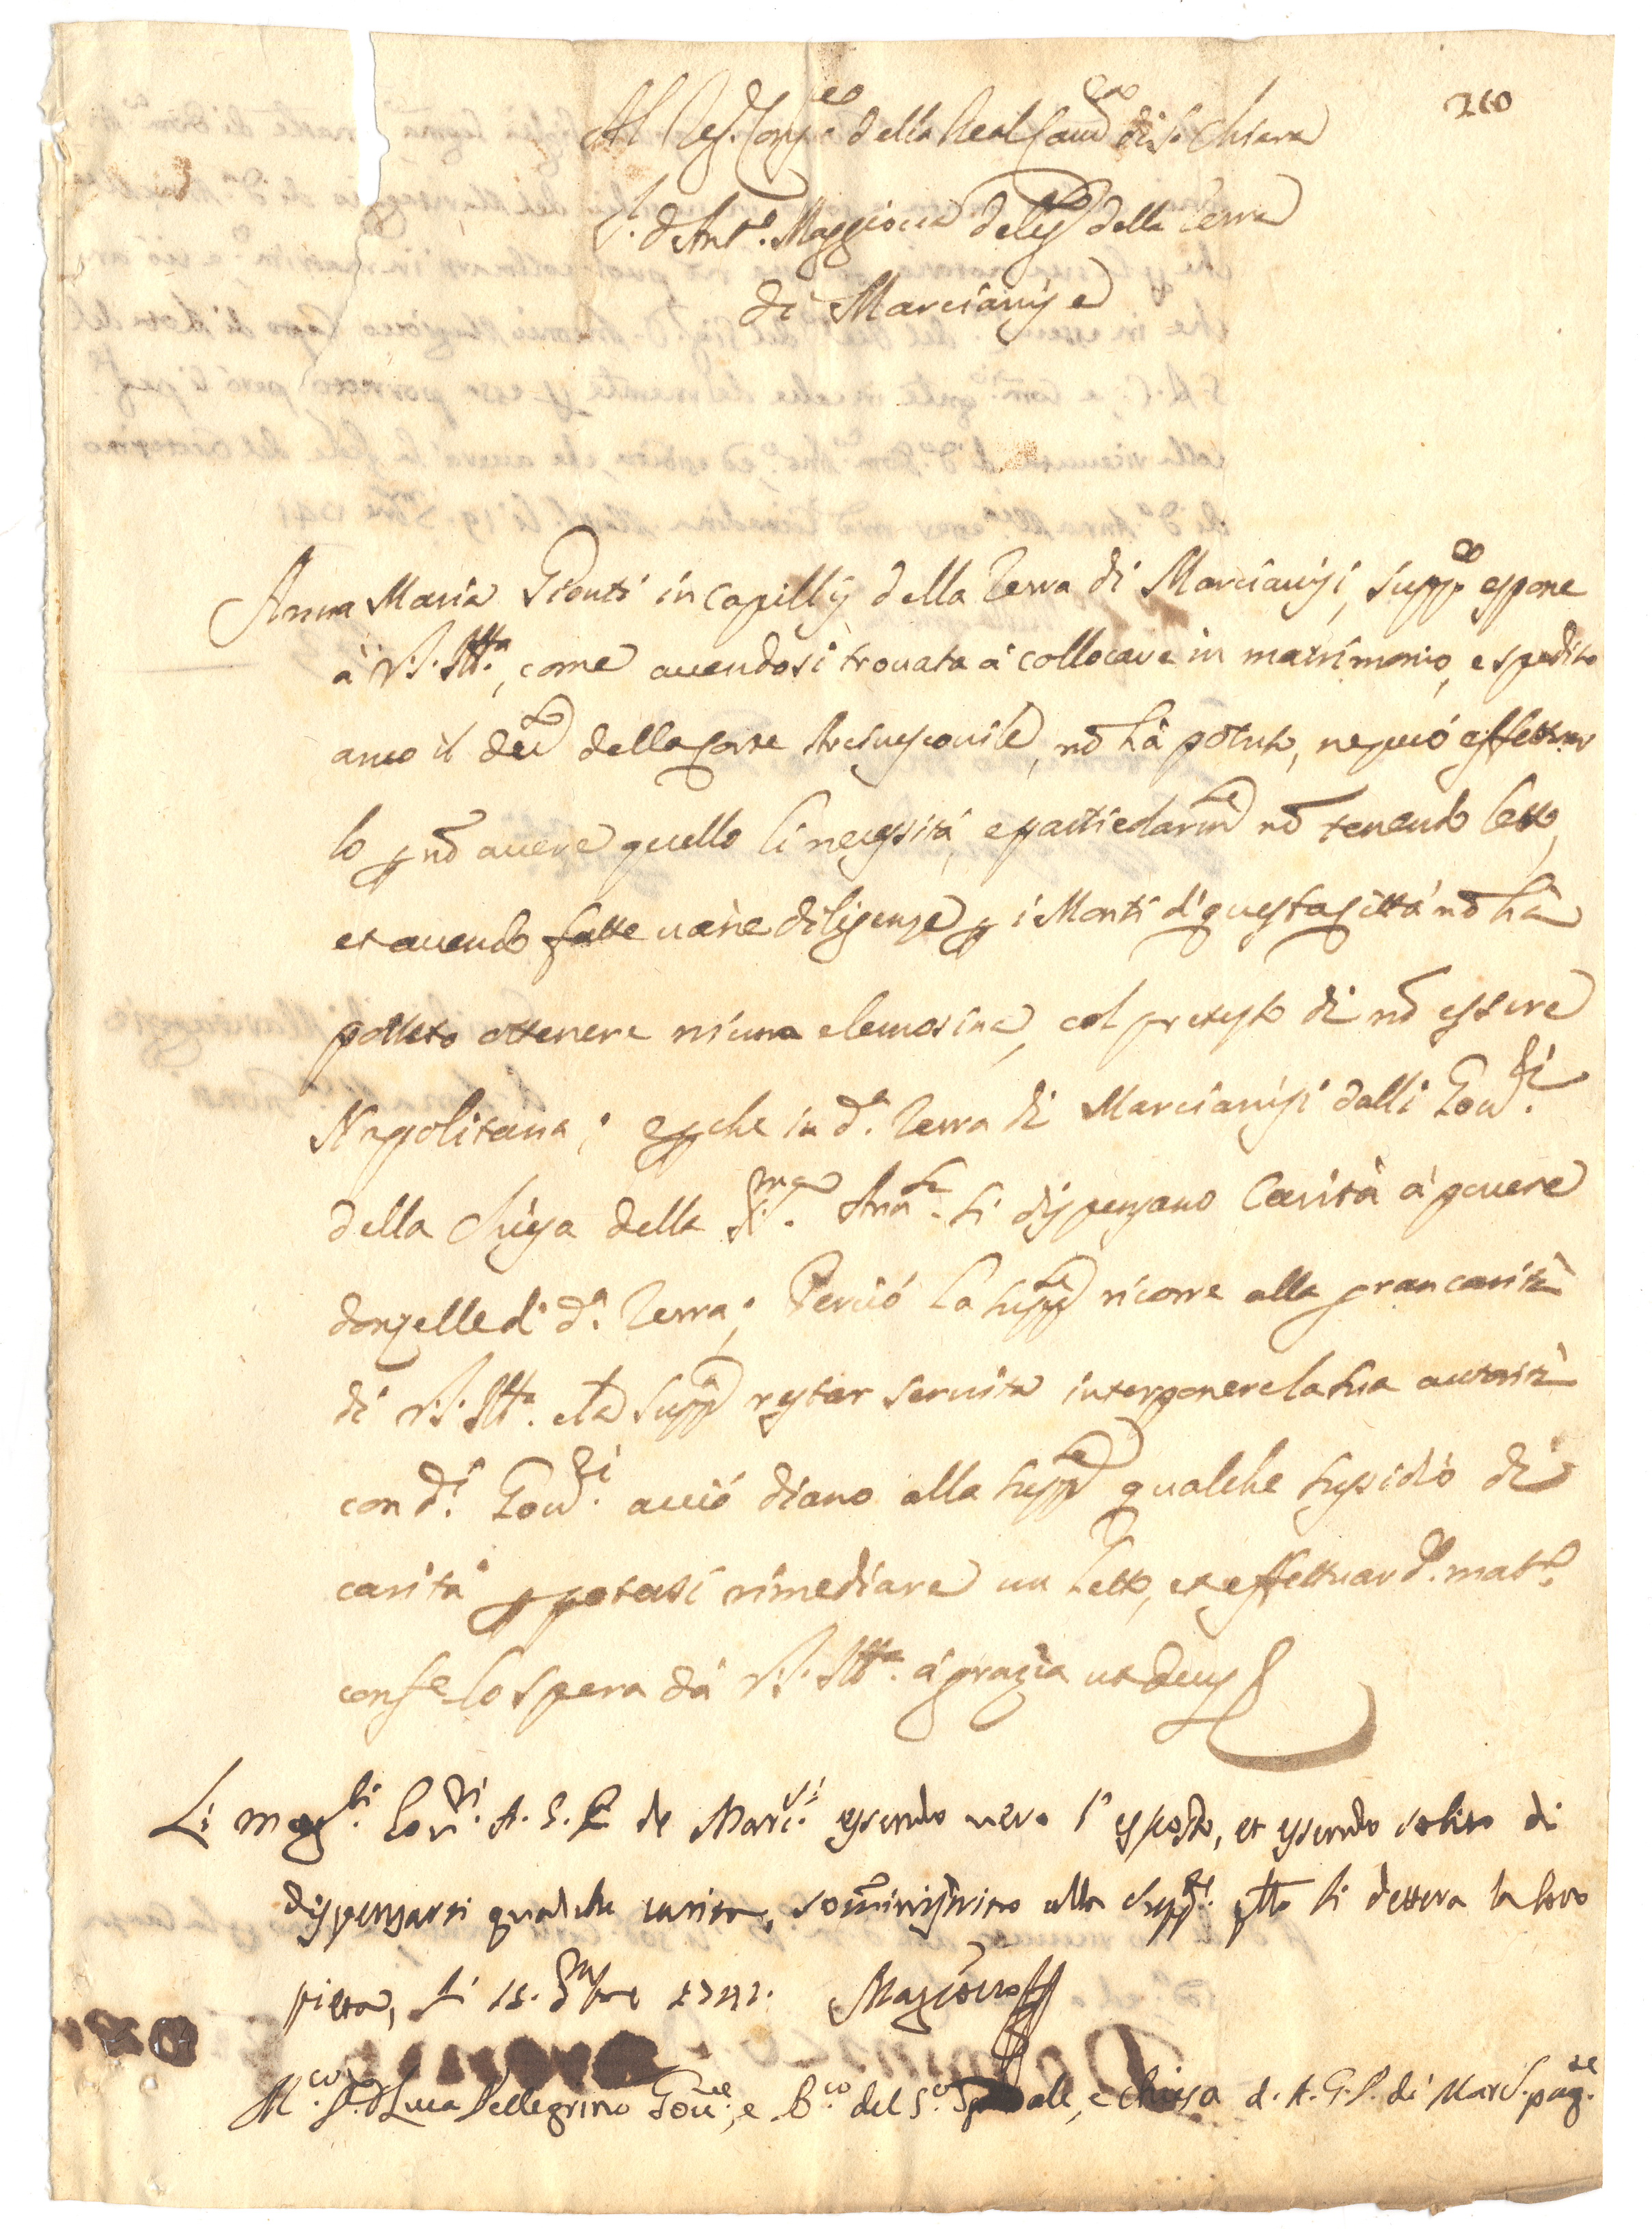 260
Al Reg. Conseg.ro della Real Cam.ra di S. Chiara
S. D. Ant.o Maggiocca deleg.to della Terra
di Marcianise
Anna Maria Gionti in Capillis della Terra di Marcianisi, supp.do espone
à V.S. Ill.ma, come avendosi trovata à collocare in matrimonio, e spedito
anco il dec.to della Corte Arcivescovile, nõ hà potuto, ne può effettuar
lo p nõ avere quello li necessita, e particolarm.te nõ tenendo letto,
et avendo fatte varie diligenze p i Monti di questa Città nõ hà
potuto ottenere niuna elemosina, col pretesto di nõ essere
Napolitana; e p che in d.a Terra di Marcianisi dalli Gov.ri
della Chiesa della SS.ma Ann.ta si dispensano Carità à povere
donzelle di d.a Terra; Perciò la supp.te ricorre alla gran carità
di V.S. Ill.ma e la supp.ca restar servita interponere la sua autorità
con d.i Gov.ri acciò diano alla supp.te qualche susidio di
carità p potersi rimediare un letto, et effettuar d.o mat.o
conf.e lo spera da V.S. Ill.ma à grazia ut Deus
Li mag.ci Gov.ri A. G. P. de Marc.si essendo vero l'esposto, et essendo solito di
dispensarsi qualche carità, somministrino alla supp.te q.llo li dettera la loro
pietà, li 15. 1741. Maggiocco
M.co D.r Luca Pellegrino Gov.re, e B.co del S.o Spedale, e chiesa d. A. G. P. di Marc. pag.te